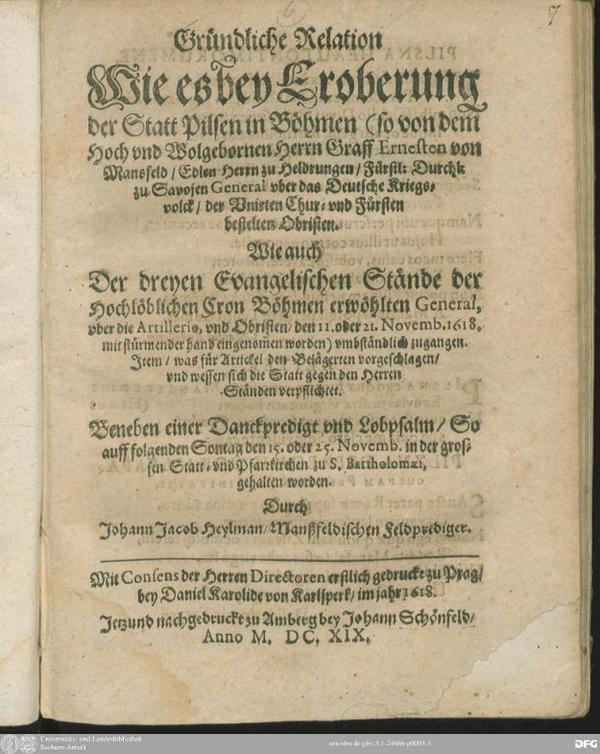 7
Gründliche Relation
Wie es bey Eroberung
der Statt Pilsen in Böhmen (so von dem
Hoch vnd Wolgebornen Herrn Graff Ernesten von
Mansfeld / Edlen Herrn zu Heldrungen / Fürstl: Durchl:
zu Savojen General vber das Deutsche Kriegs-
volck / der Vnirten Chur- vnd Fürsten
bestelten Obristen.
Wie auch
Der dreyen Evangelischen Stände der
Hochlöblichen Cron Böhmen erwöhlten General,
vber die Artillerie, vnd Obristen / den 11. oder 21. Novemb. 1618.
mit stürmender hand eingenomen worden) vmbständlich zugangen.
Item / was für Artickel den Belägerten vorgeschlagen /
vnd wessen sich die Statt gegen den Herren
Ständen verpflichtet.
Beneben einer Danckpredigt vnd Lobpsalm / So
auff folgenden Sontag den 15. oder 25. Novemb. in der gros-
sen Statt- vnd Pfarrkirchen zu S. Bartholomæi,
gehalten worden.
Durch
Johann Jacob Heylman / Manßfeldischen Feldprediger.
Mit Consens der Herren Directoren erstlich gedruckt zu Prag /
bey Daniel Karolide von Karlsperk / im jahr 1618.
Jetzund nachgedruckt zu Amberg bey Johann Schönfeld /
Anno M. DC. XIX.
Universitäts- und Landesbibliothek
Sachsen-Anhalt
urn:nbn:de:gbv:3:1-24666-p0003-3
DFG